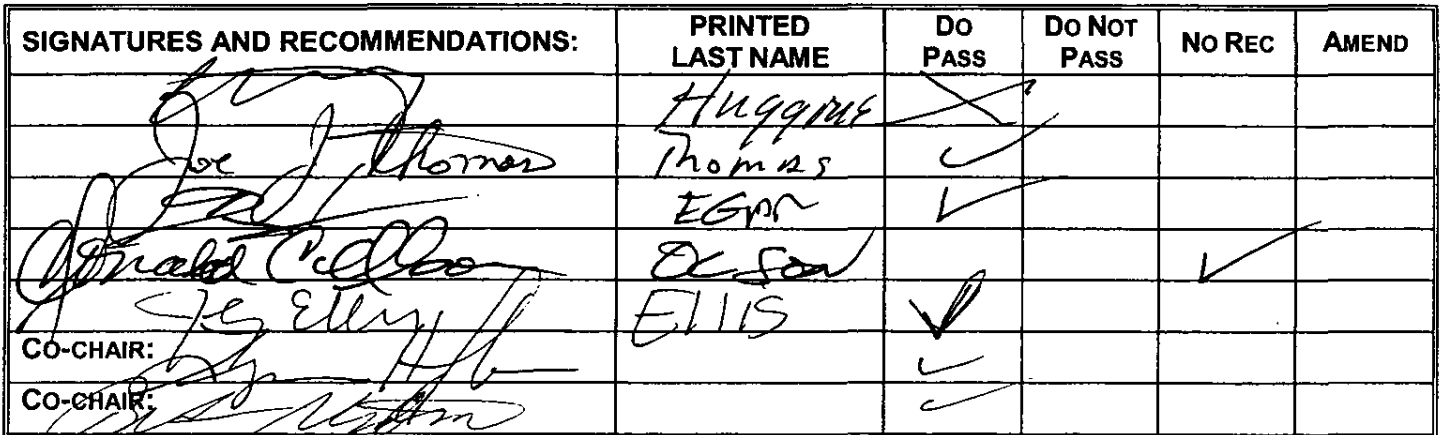 SIGNATURES AND RECOMMENDATIONS: PRINTED LAST NAME DO PASS DO NOT PASS NO REC AMEND
Huggins
Joe J Thomas Thomas
EGAN
Donald C Olson OLSON
Ellis ELLIS
CO-CHAIR:
CO-CHAIR: